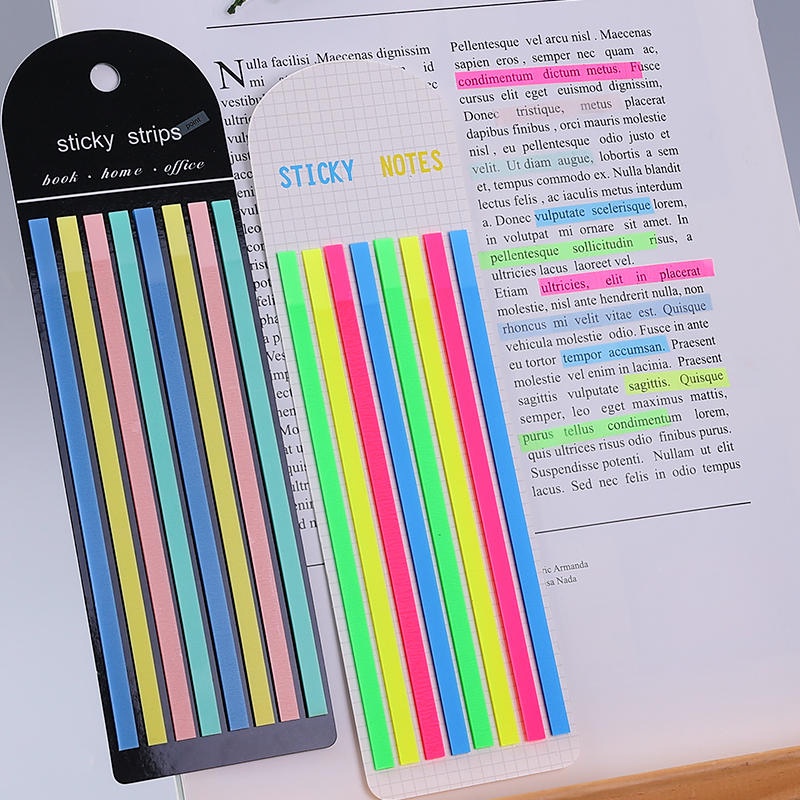 sticky strips
point
book · home · office
STICKY NOTES
Nulla facilisi .Maecenas dignissim
mi id
vestib
ultri
just
Pellentesque vel arcu nisl . Maecenas
sapien eros , semper nec quam ac,
condimentum dictum metus. Fusce
cursus elit eget euismod dignissim,
Donec tristique, metus placerat
dapibus finibus , orci mauris molestie
nisl , eu pellentesque odio justo et
velit. Ut diam augue, lobortis a sem
et, tempus commodo ex. Nulla blandit
lectus felis , ac iaculis metus interdum
a. Donec vulputate scelerisque lorem,
in volutpat mi ornare sit amet. In
pellentesque sollicitudin risus, a
ultricies lacus laoreet vel.
Etiam ultricies, elit in placerat
molestie, nisl ante hendrerit nulla, non
rhoncus mi velit vitae est. Quisque
vehicula molestie odio. Fusce in ante
eu tortor tempor accumsan. Praesent
molestie vel enim in lacinia. Praesent
sagittis vulputate sagittis. Quisque
semper, leo eget maximus mattis,
purus tellus condimentum lorem,
quis ultrices risus odio finibus purus.
Suspendisse potenti. Nullam ut elit
lacus. Sed nec felis in odio tempus
ric Armanda
sa Nada